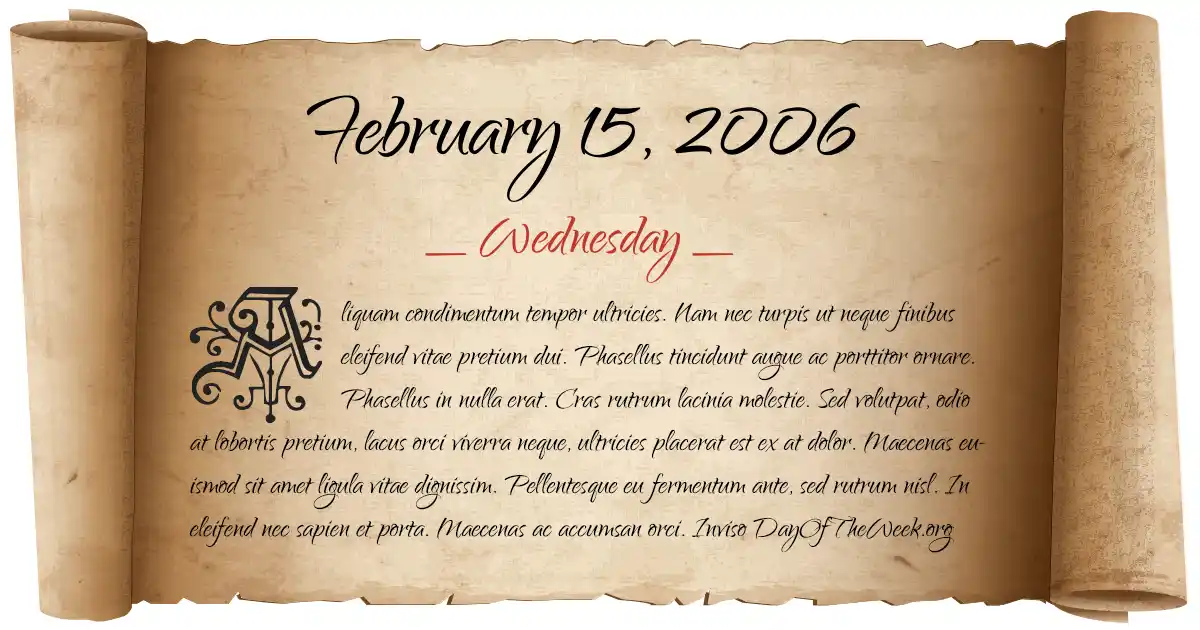 February 15, 2006
Wednesday
Aliquam condimentum tempor ultricies. Nam nec turpis ut neque finibus
eleifend vitae pretium dui. Phasellus tincidunt augue ac porttitor ornare.
Phasellus in nulla erat. Cras rutrum lacinia molestie. Sed volutpat, odio
at lobortis pretium, lacus orci viverra neque, ultricies placerat est ex at dolor. Maecenas eu-
ismod sit amet ligula vitae dignissim. Pellentesque eu fermentum ante, sed rutrum nisl. In
eleifend nec sapien et porta. Maecenas ac accumsan orci. Inviso DayOfTheWeek.org